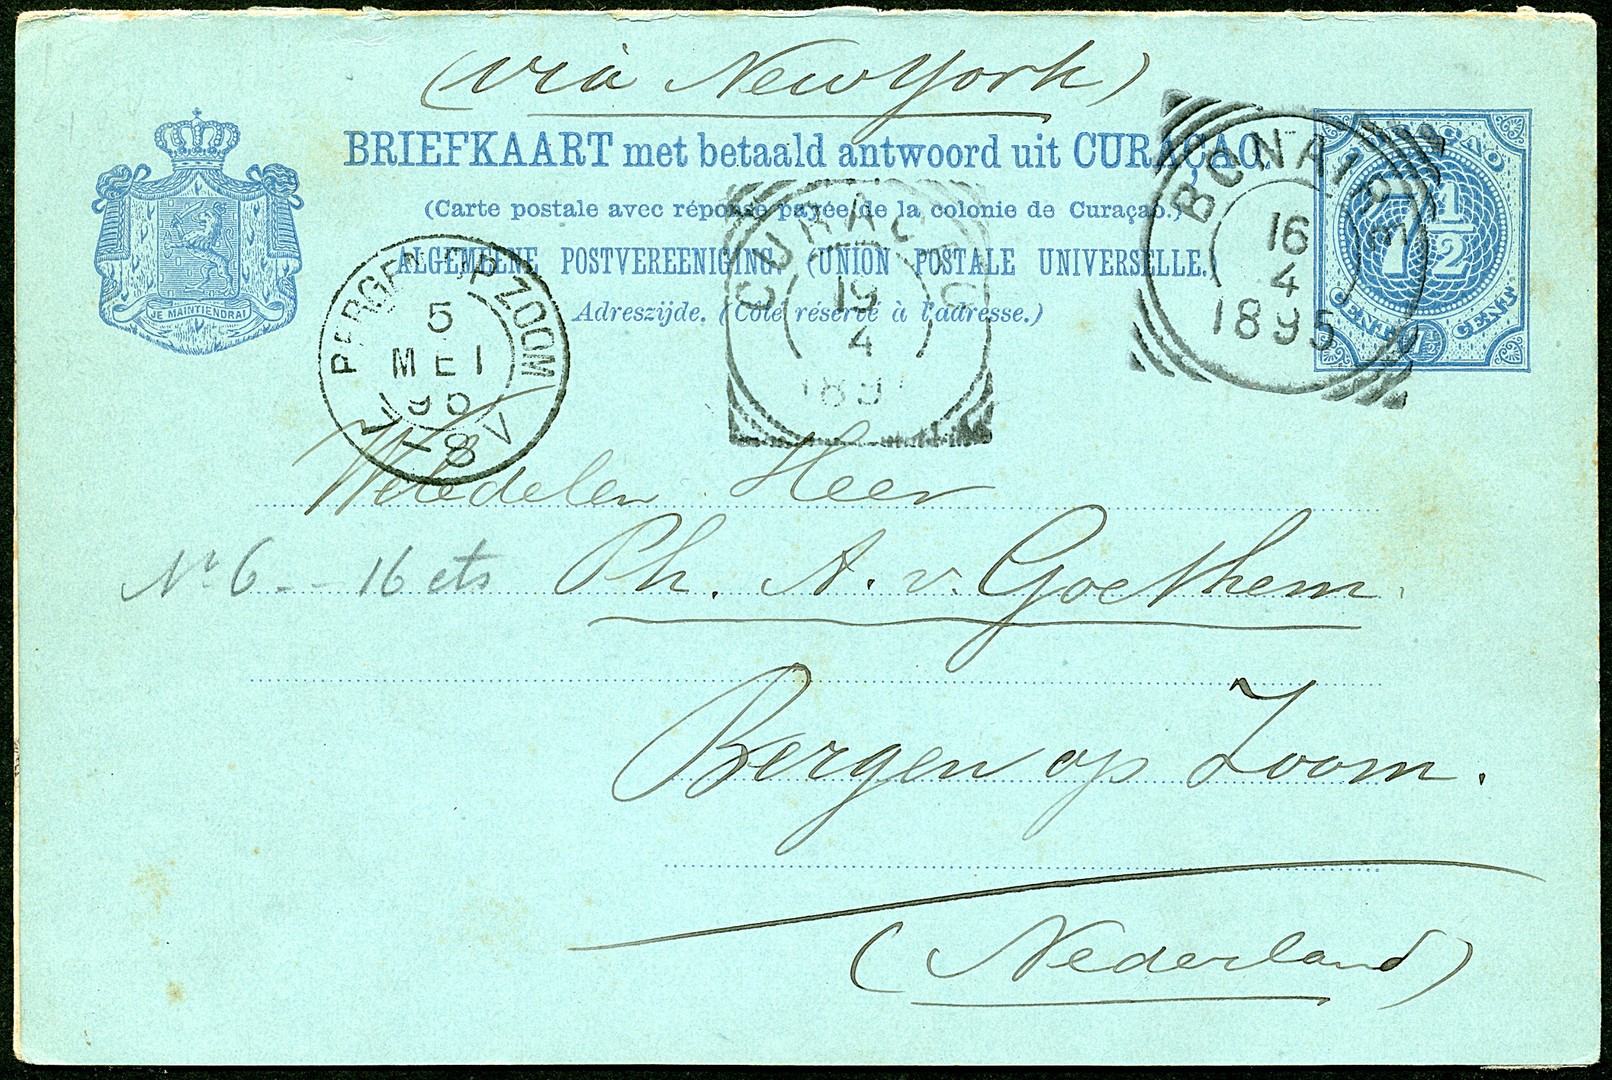 (via New York)
BRIEFKAART met betaald antwoord uit CURAÇAO.
(Carte postale avec réponse payée de la colonie de Curaçao.)
ALGEMEENE POSTVEREENIGING (UNION POSTALE UNIVERSELLE.
Adreszijde. (Côté réservé à l'adresse.)
JE MAINTIENDRAI
CURAÇAO
7 1/2
CENT 7 1/2 CENT
BONAIRE
16
4
1895
CURAÇAO
19
4
189
BERGEN-OP-ZOOM
5
MEI
95
7-8V
Weledelen Heer
No 6 -- 16 cts
Ph. A. v. Goethem.
Bergen op Zoom.
(Nederland)